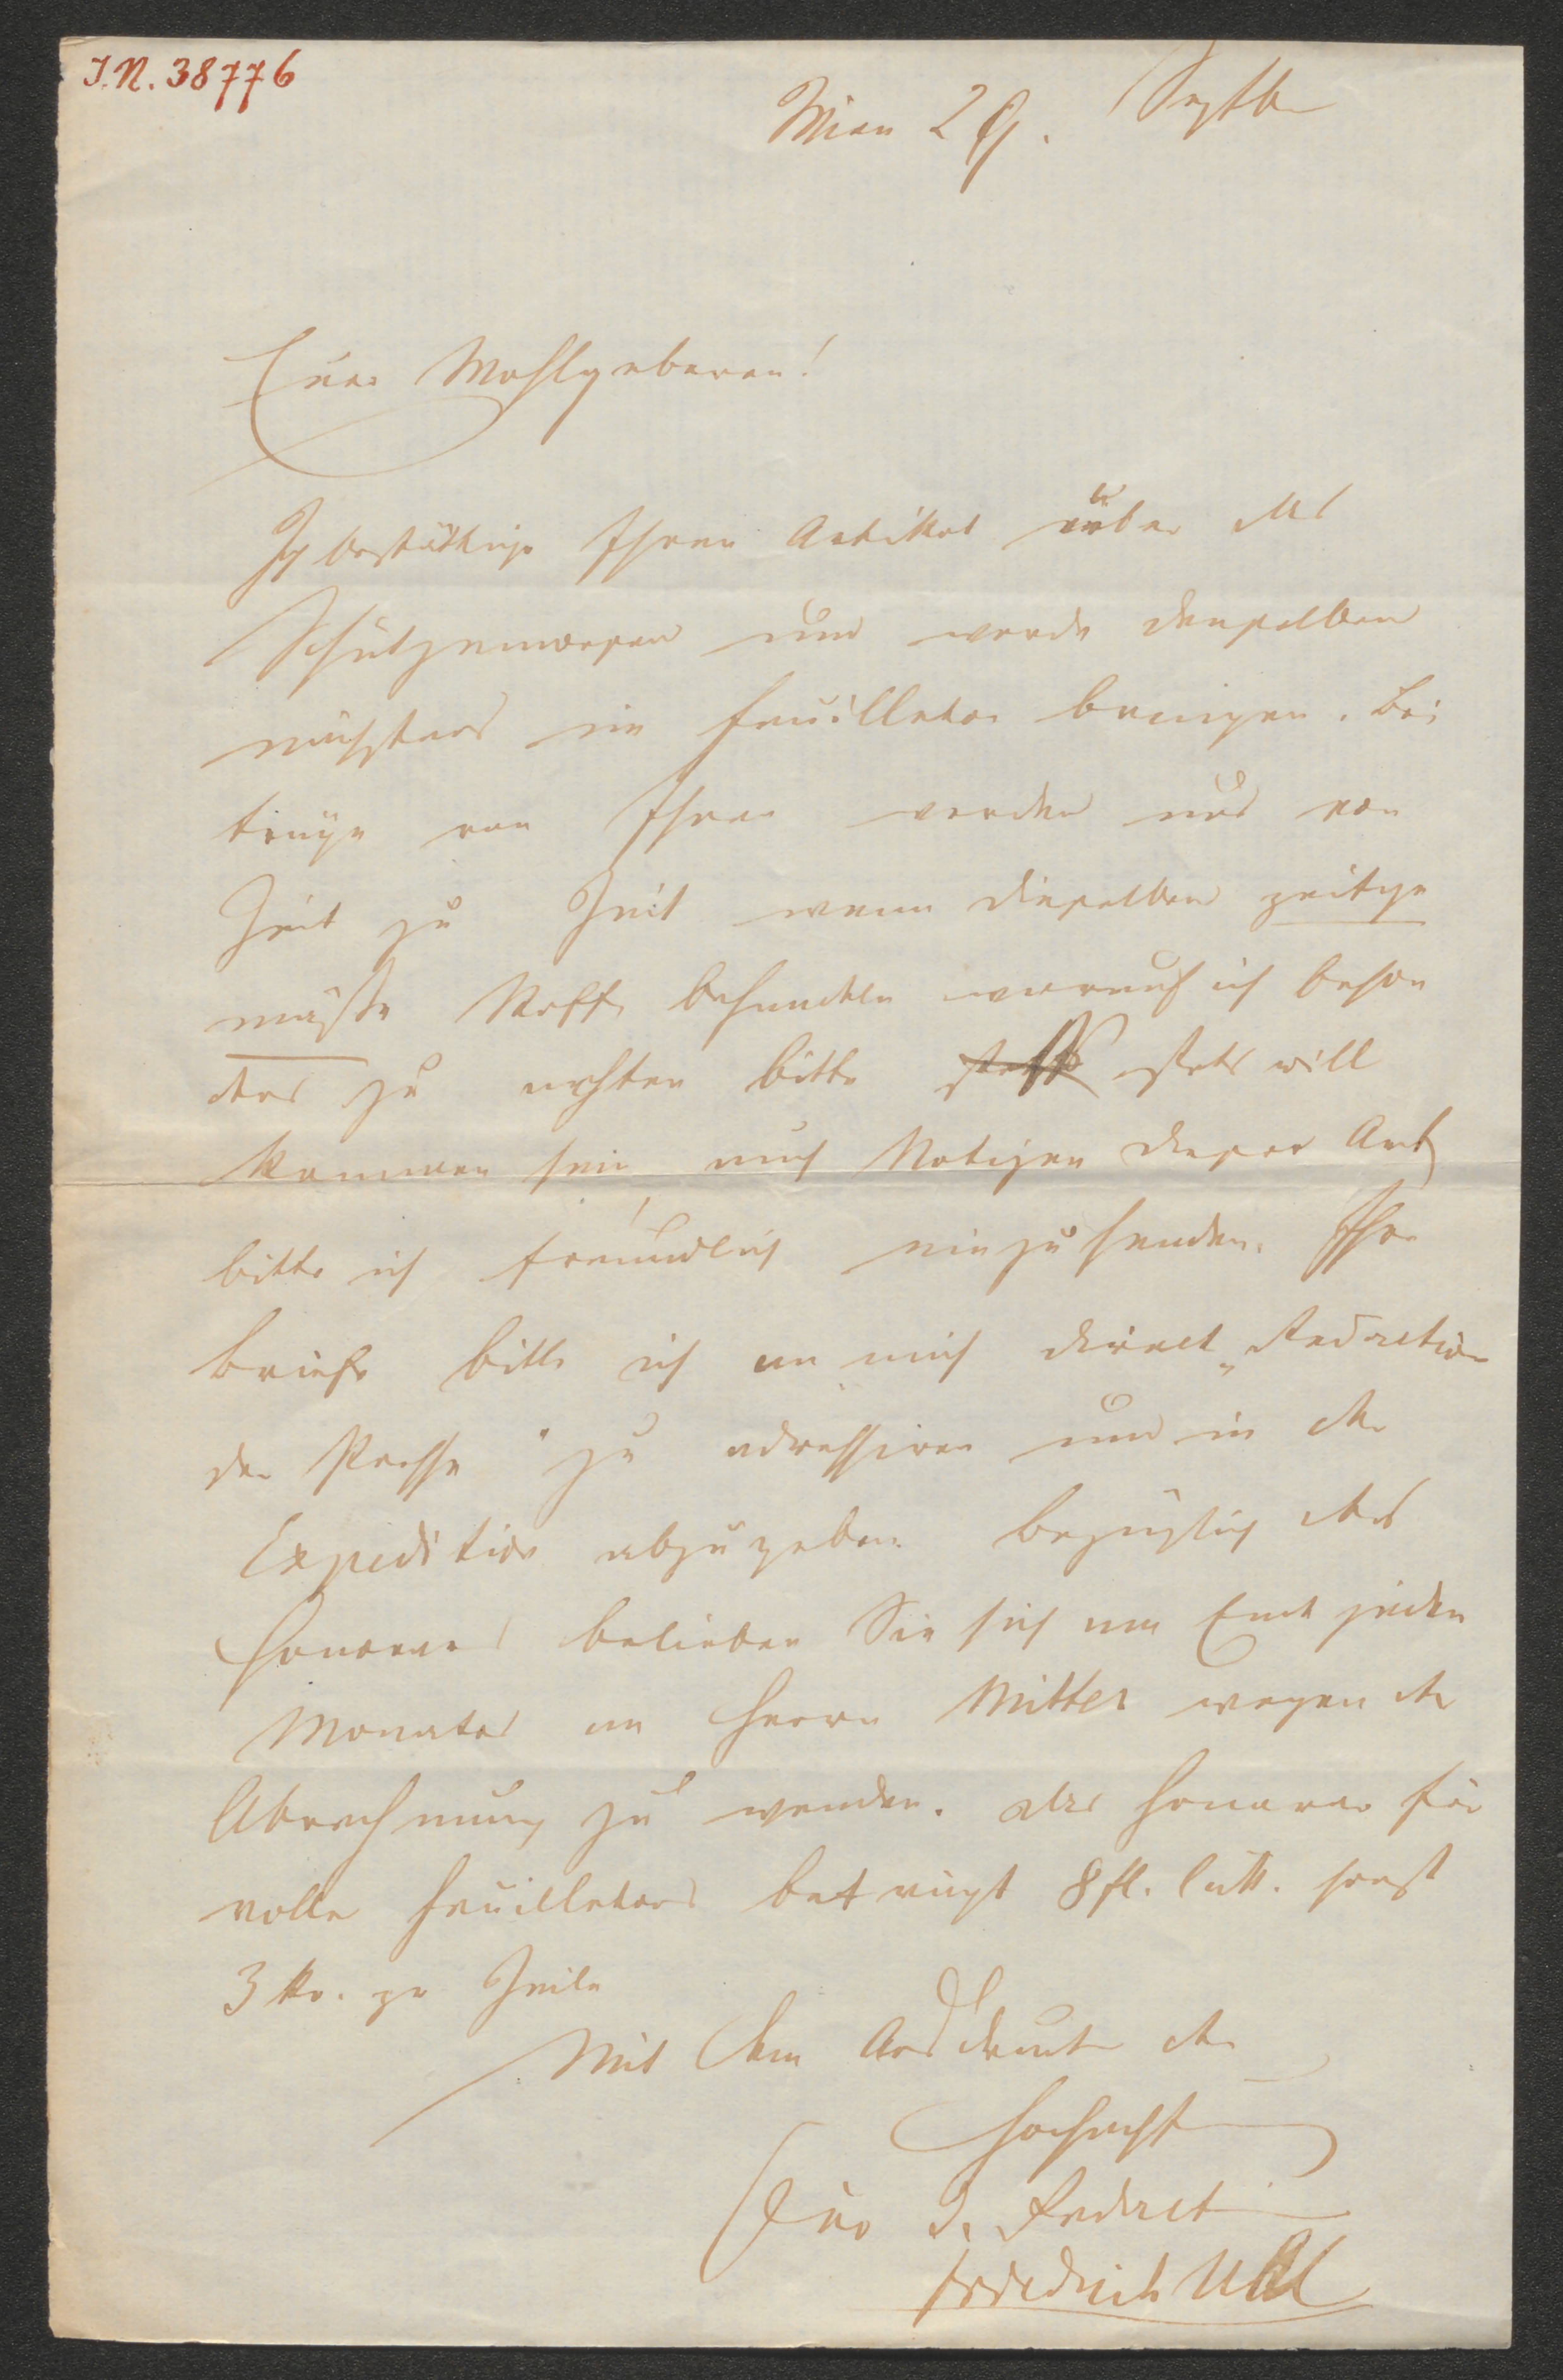 I.N. 38776
Wien 29. Septb
Euer Wohlgeboren!
Ich bestättige Ihren Artikel über das
Schützenwesen und werde denselben
nächstens im Feuilleton bringen. Bei
träge von Ihnen werden uns von
Zeit zu Zeit wenn dieselben zeitge
mäße Stoffe behandeln worauf ich beson
ders zu achten bitte stets will
kommen sein auch Notizen dieser Art
bitte ich freundlich einzusenden. Ihre
Briefe bitte ich an mich direct „Redaction
der Presse" zu adressiren und in der
Expedition abzugeben. Bezüglich des
Honorars belieben Sie sich am Ende jeden
Monates an Herrn Mitter wegen der
Abrechnung zu wenden. Das Honorar für
volle Feuilletons beträgt 8 fl. sonst
3 kr. pr Zeile
Mit dem Ausdrucke der
Hochacht
Für d. Redact
Friedrich Uhl